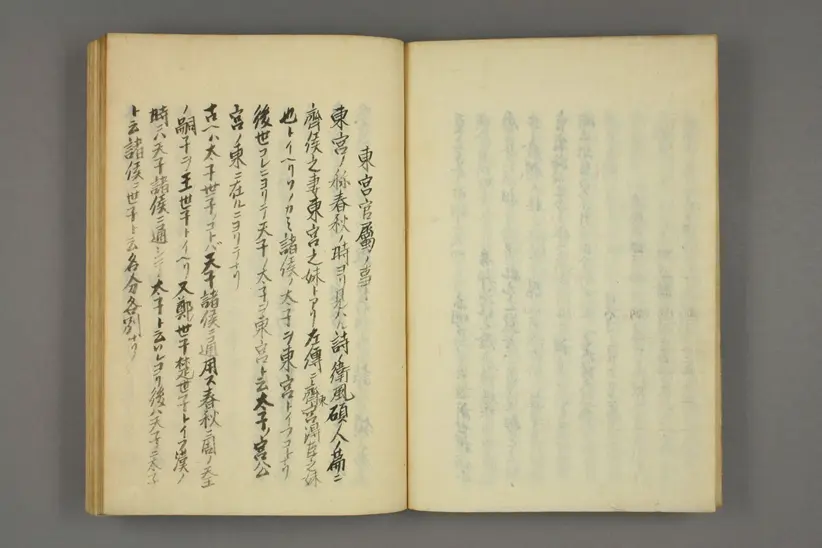 東宮官屬ノ事
東宮ノ称春秋ノ時ヨリ見ヘタリ詩ノ衛風碩人ノ篇ニ
齊侯之妻東宮之妹トアリ左傳ニ齊東宮得臣之妹
也トイヘリソノカミ諸侯ノ太子ヲ東宮トイフコトナリ
後世コレニヨリテ天子ノ太子ヲ東宮ト云太子ノ宮公
宮ノ東ニ在ルニヨリテナリ
古ヘハ太子世子ノコトバ天子諸侯ニ通用ス春秋ニ周ノ天王
ノ嗣子ヲ王世子トイヘリ又鄭世子楚世子トイフ漢ノ
時ハ天子諸侯ニ通シテ太子ト云ソレヨリ後ハ天子ニ太子
ト云諸侯ニ世子ト云名分各別ナリ